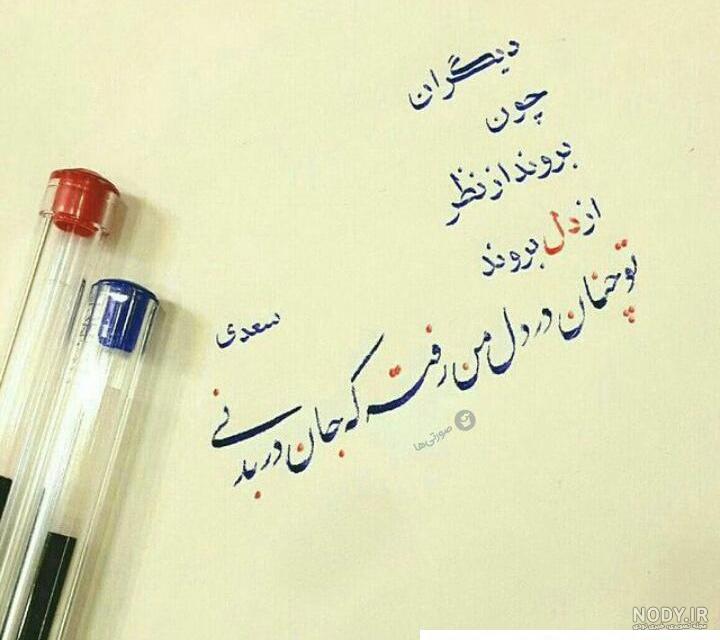 دیگران
چون
بروند از نظر
از دل بروند
تو چنان در دل من رفته که جان در بدنی
سعدی
صورتی‌ها
NODY.IR